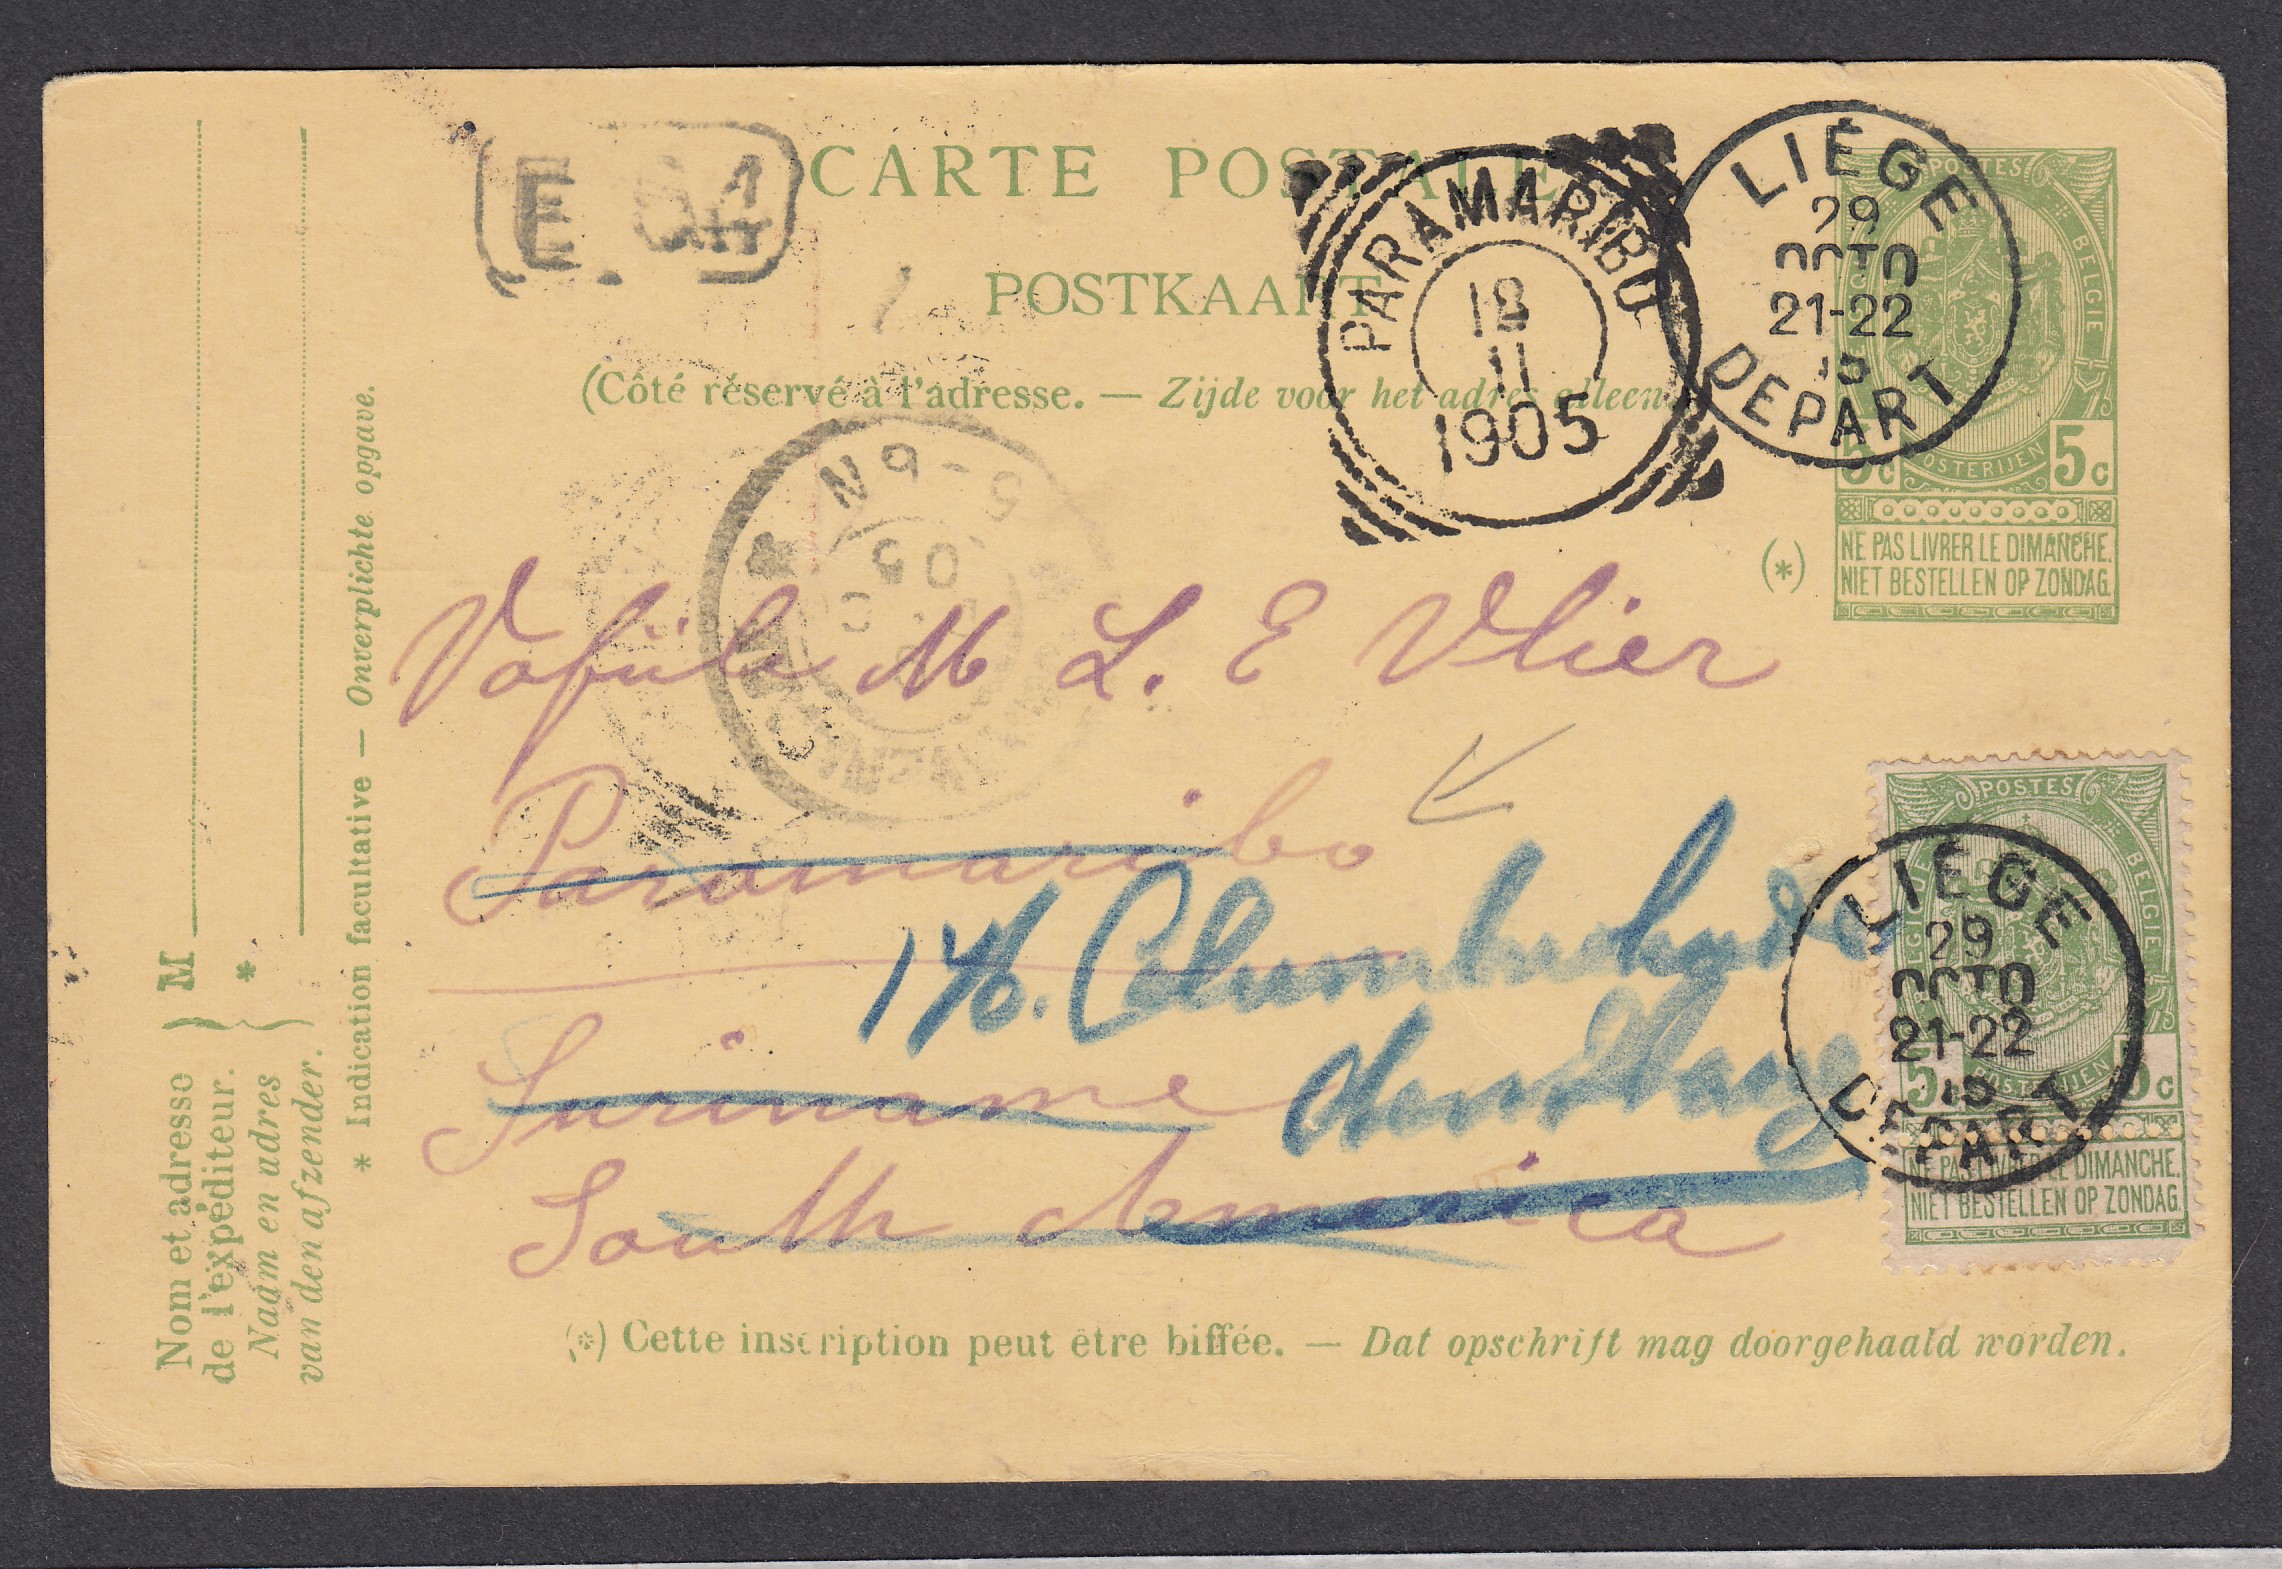 CARTE POSTALE
POSTKAART
(Côté réservé à l'adresse. — Zijde voor het adres alleen
E.
PARAMARIBO
18
11
1905
LIÉGE
29
OCTO
21-22
DEPART
POSTES
BELGIE
POSTERIJEN
5c 5c
NE PAS LIVRER LE DIMANCHE.
NIET BESTELLEN OP ZONDAG.
(*)
5-6N
05
M L. E Vlier
Paramaribo
Suriname
South America
POSTES
BELGIQUE
BELGIE
POSTERIJEN
5c
LIÉGE
29
OCTO
21-22
DEPART
NE PAS LIVRER LE DIMANCHE.
NIET BESTELLEN OP ZONDAG.
M
*
Nom et adresse
de l'expéditeur.
Naam en adres
van den afzender.
* Indication facultative — Onverplichte opgave.
(*) Cette inscription peut être biffée. — Dat opschrift mag doorgehaald worden.